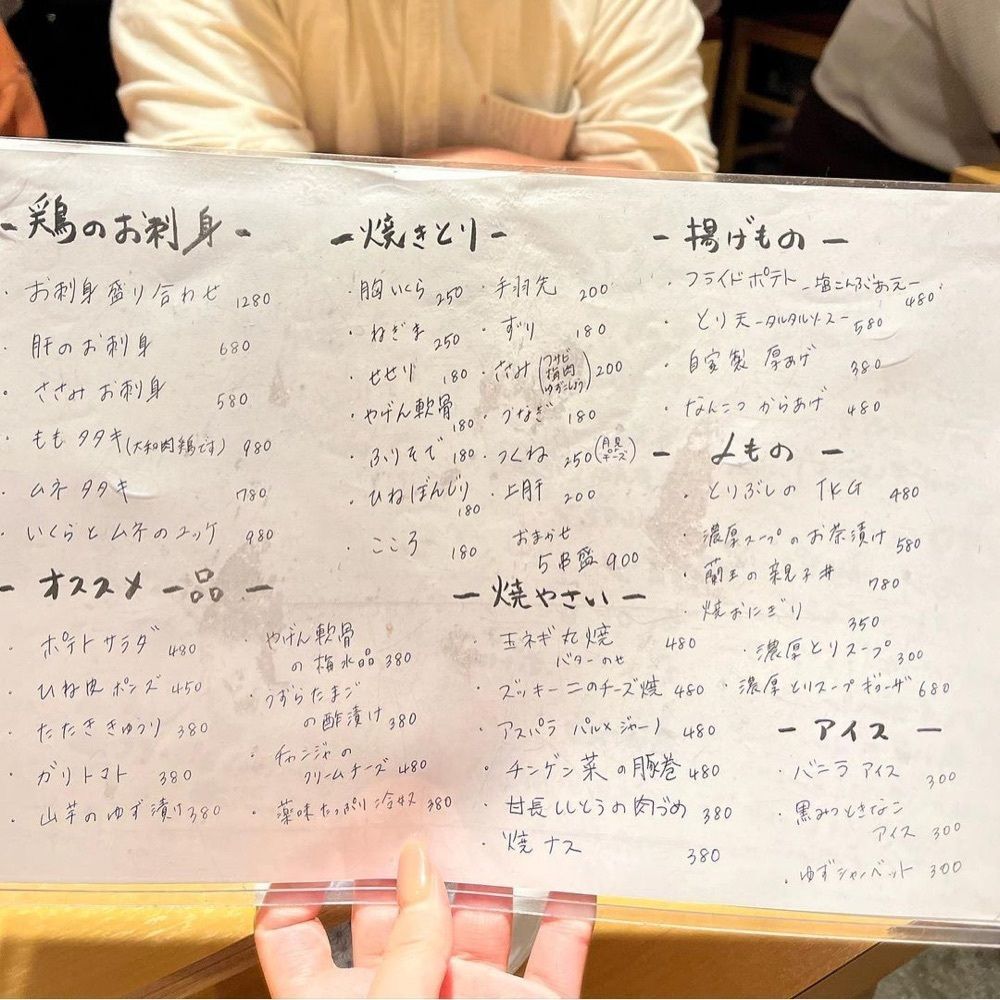 - 鶏のお刺身 -
・お刺身盛り合わせ 1280
・肝のお刺身 680
・ささみお刺身 580
・ももタタキ(大和肉鶏です) 980
・ムネタタキ 780
・いくらとムネのユッケ 980
- オススメ一品 -
・ポテトサラダ 480
・ひね皮ポンズ 450
・たたききゅうり 380
・ガリトマト 380
・山芋のゆず漬け 380
・やげん軟骨
の梅水晶 380
・うずらたまご
の酢漬け 380
・チャンジャの
クリームチーズ 480
・薬味たっぷり冷奴 380
- 焼きとり -
・胸いくら 250
・ねぎま 250
・せせり 180
・やげん軟骨 180
・ふりそで 180
・ひねぼんじり 180
・こころ 180
・手羽先 200
・ずり 180
・ささみ(ワサビ
梅肉
ゆずこしょう) 200
・つなぎ 180
・つくね 250(月見
チーズ)
・上肝 200
おまかせ
5串盛 900
- 焼やさい -
・玉ネギ丸焼 480
バターのせ
・ズッキーニのチーズ焼 480
・アスパラ パルメジャーノ 480
・チンゲン菜の豚巻 480
・甘長ししとうの肉づめ 380
・焼ナス 380
- 揚げもの -
・フライドポテト -塩こんぶあえ- 480
・とり天 -タルタルソース- 580
・自家製 厚あげ 380
・なんこつからあげ 480
- 〆もの -
・とりぶしのTKG 480
・濃厚スープのお茶漬け 580
・蘭王の親子丼 780
・焼おにぎり 350
・濃厚とりスープ 300
・濃厚とりスープギョーザ 680
- アイス -
・バニラアイス 300
・黒みつときなこ
アイス 300
・ゆずシャーベット 300